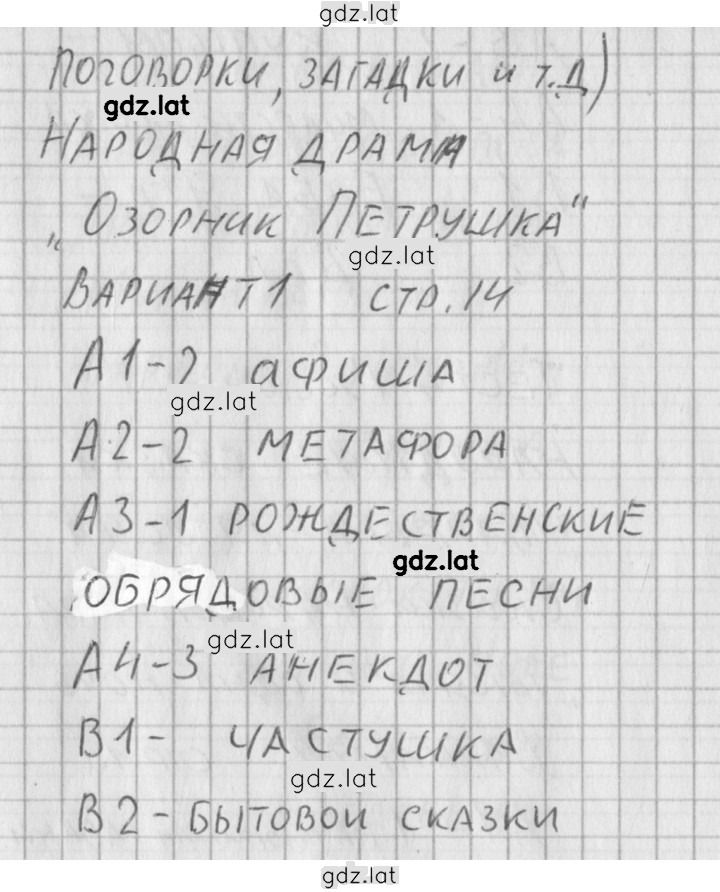 gdz.lat
ПОГОВОРКИ, ЗАГАДКИ и т.д)
gdz.lat
НАРОДНАЯ ДРАМА
„Озорник Петрушка“
gdz.lat
ВАРИАНТ1 стр.14
А1-2 афиша
gdz.lat
А2-2 МЕТАФОРА
А3-1 РОЖДЕСТВЕНСКИЕ
gdz.lat
ОБРЯДОВЫЕ ПЕСНИ
gdz.lat
А4-3 АНЕКДОТ
В1- ЧАСТУШКА
gdz.lat
В2-БЫТОВОЙ СКАЗКИ
gdz.lat